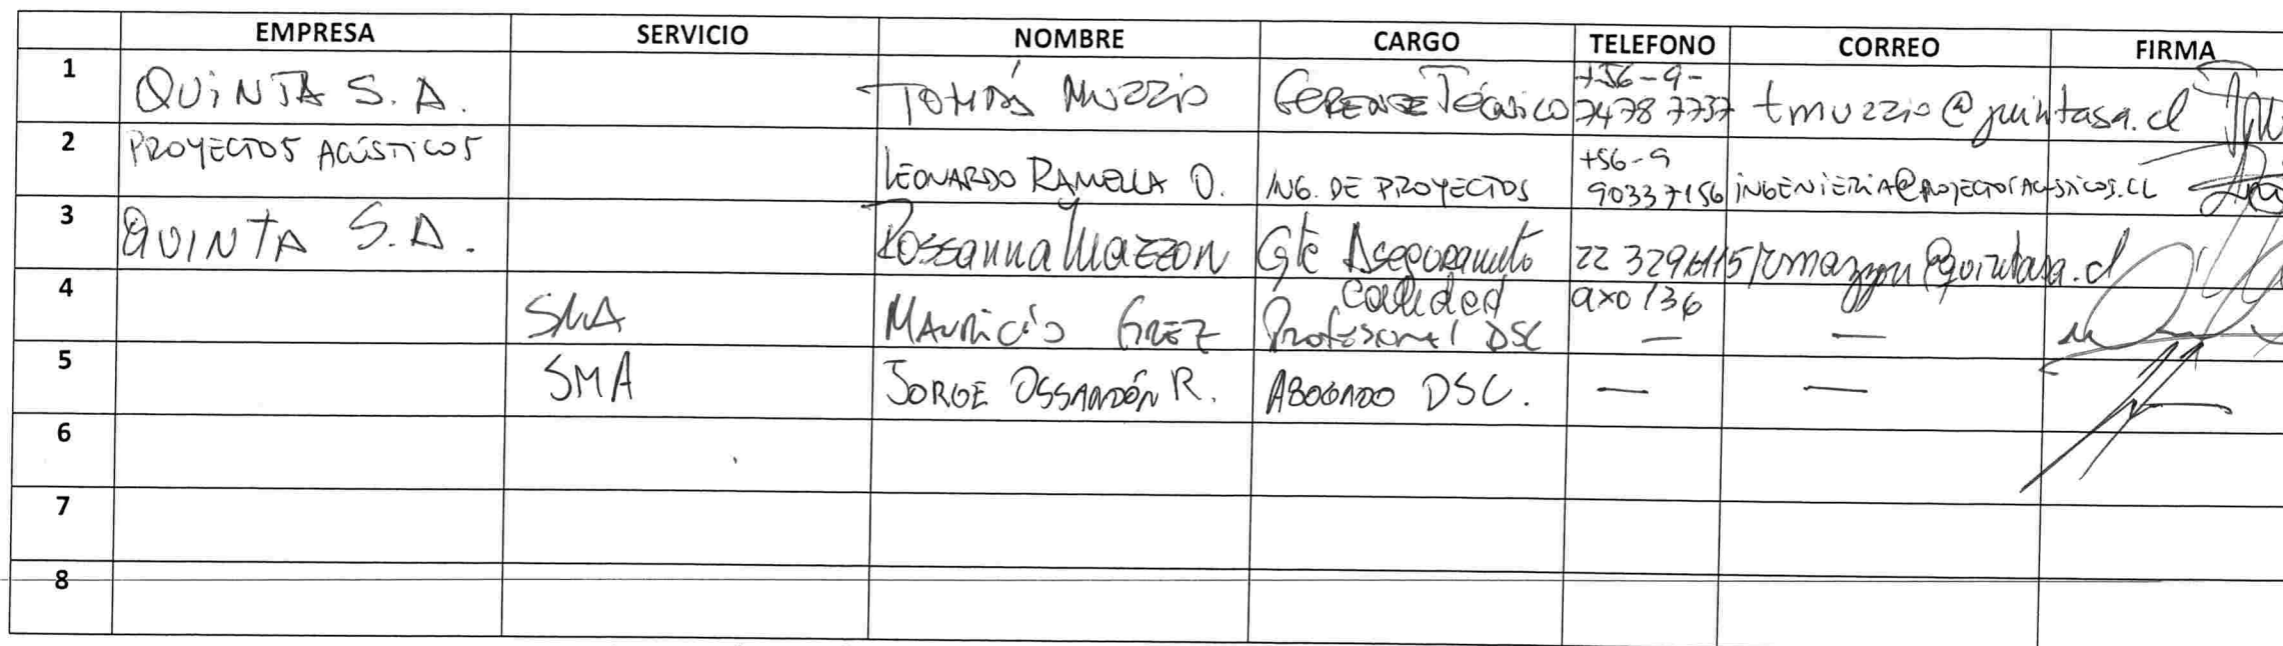 EMPRESA SERVICIO NOMBRE CARGO TELEFONO CORREO FIRMA
1 QUINTA S.A. TOMÁS MUZZIO GERENTE TÉCNICO +56-9-74787737 tmuzzio@quintasa.cl
2 PROYECTOS ACÚSTICOS LEONARDO RAMELLA O. ING. DE PROYECTOS +56-9 90337156 INGENIERIA@PROYECTOSACUSTICOS.CL
3 QUINTA S.A. Rossanna Mazzon Gte Aseguramto calidad 22 axo 136 rmazzon@quintasa.cl
4 SMA MAURICIO GREZ Profesional DSC — —
5 SMA JORGE OSSANDÓN R. ABOGADO DSC. — —
6
7
8